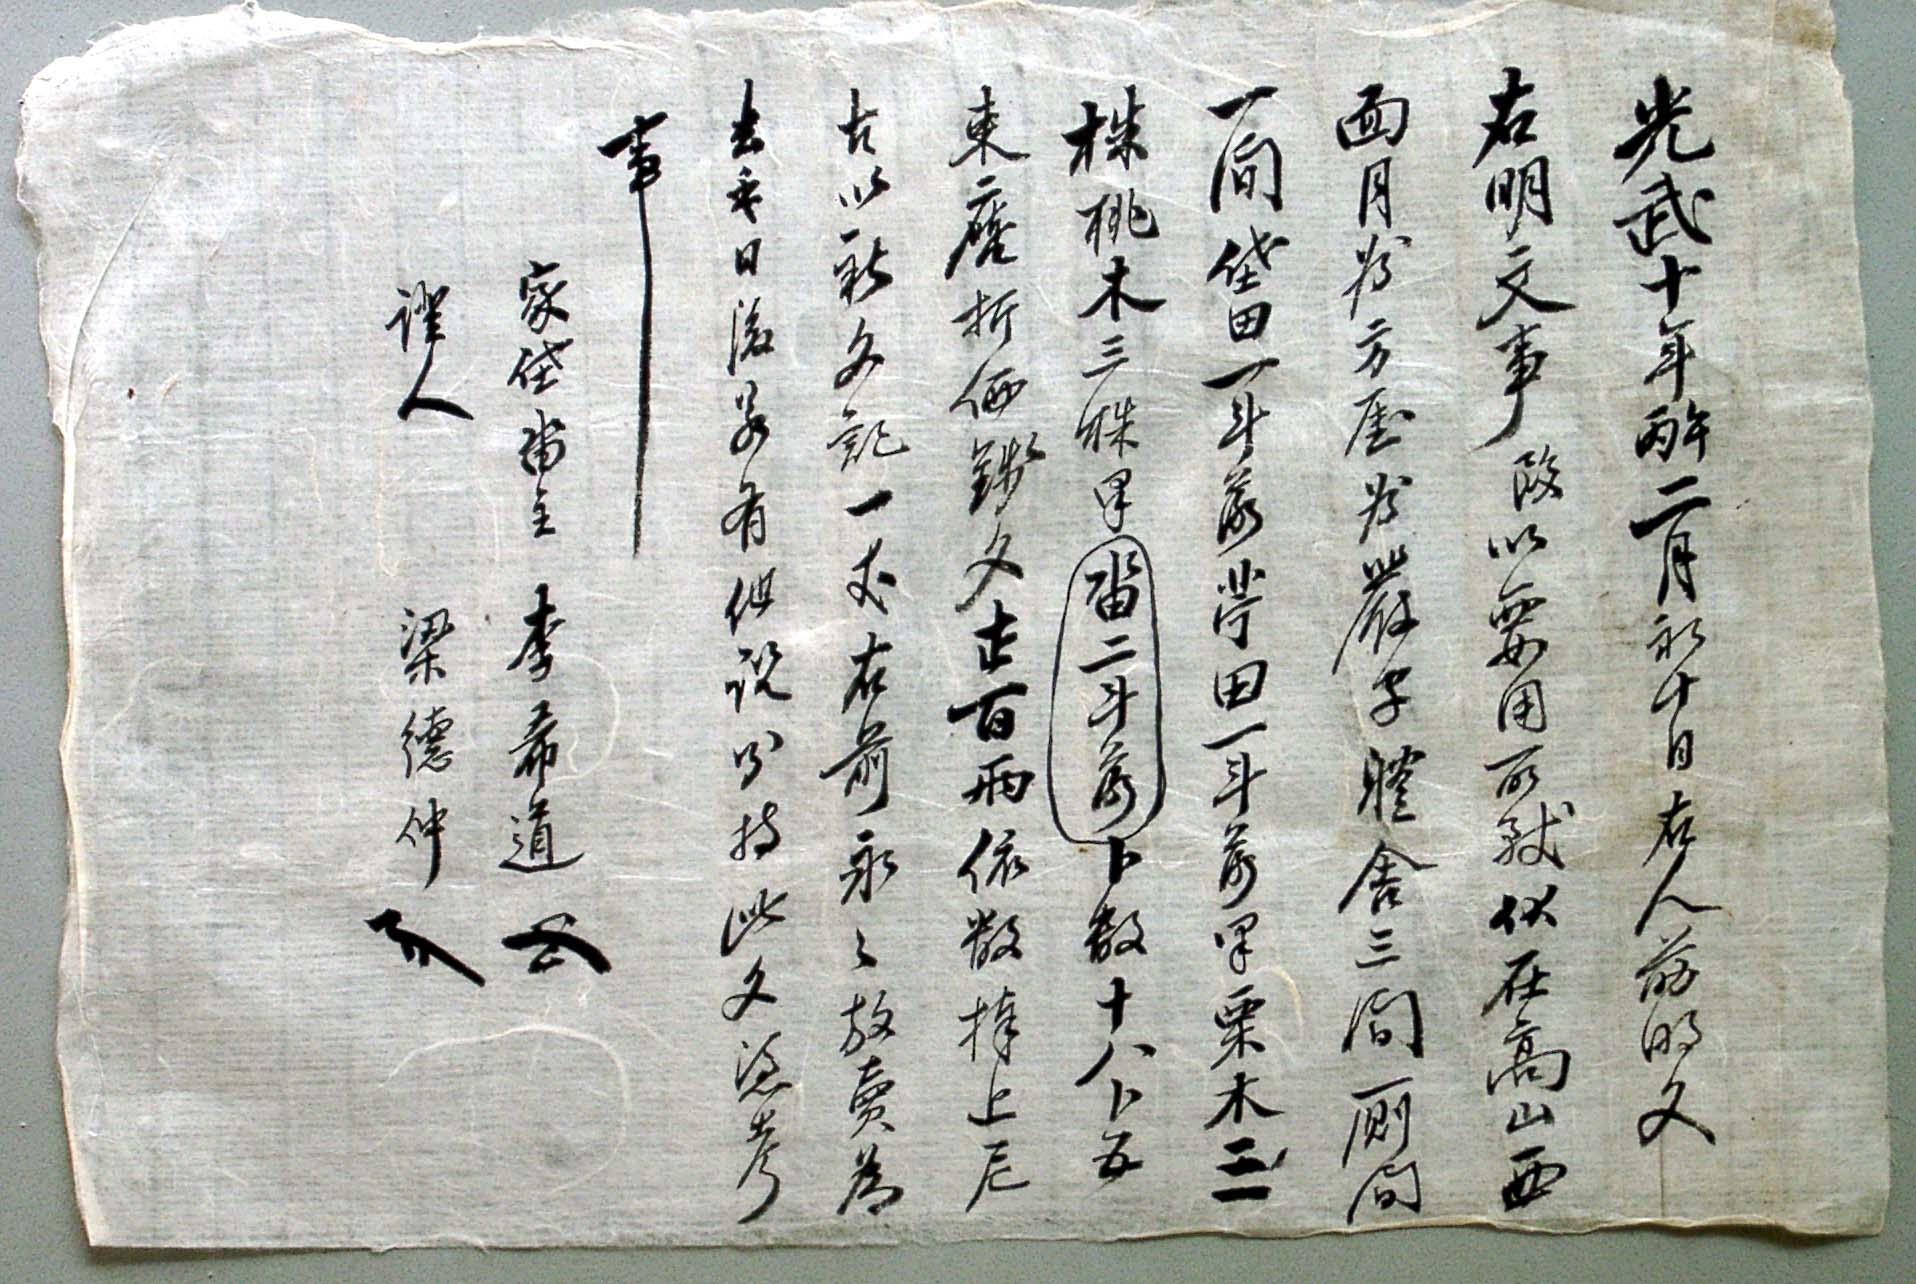 光武十年丙午二月初十日右人前明文
右明文事段以要用所致伏在高山西
面月谷方屋谷巖字體舍三間厠間
一間垈田一斗落苧田一斗落果栗木三
株桃木三株果畓二斗落卜數十八卜五
束二廛折価錢文壱百兩依數捧上是
古以新文記一丈右前永〃放賣爲
去乎日後若有他說以持此文憑考
事
家垈畓主 李希道
證人 梁德仲